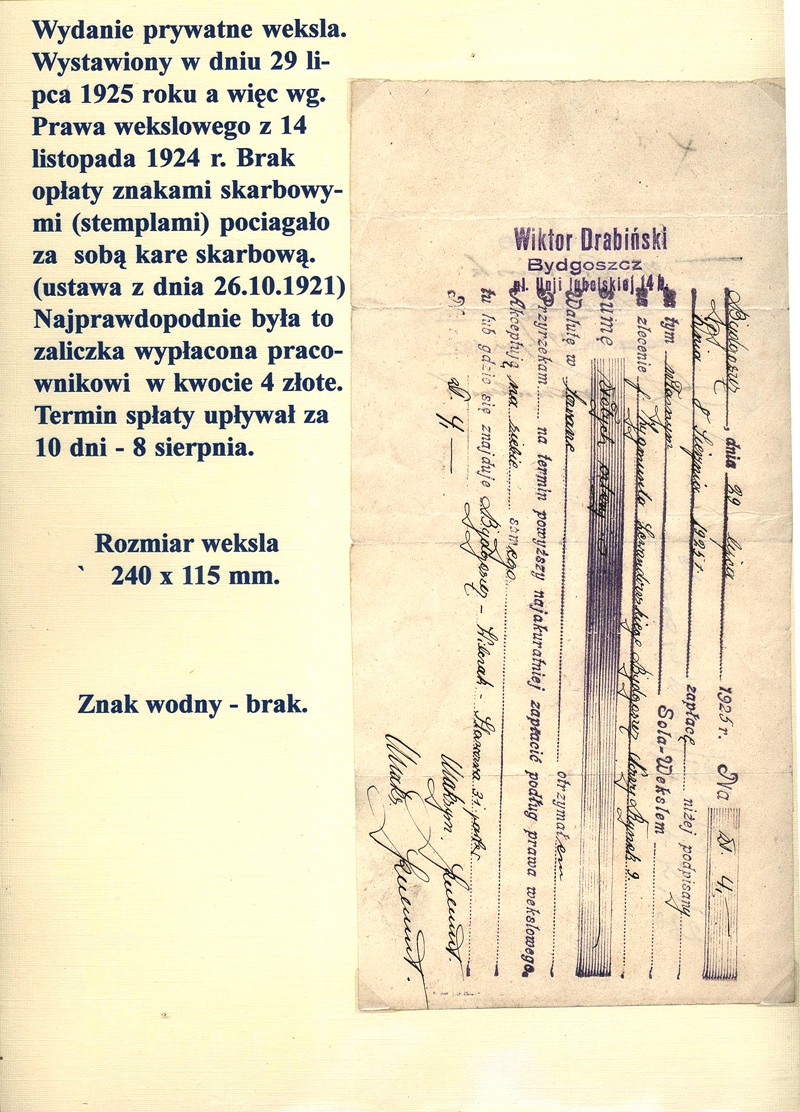 Wydanie prywatne weksla.
Wystawiony w dniu 29 li-
pca 1925 roku a więc wg.
Prawa wekslowego z 14
listopada 1924 r. Brak
opłaty znakami skarbowy-
mi (stemplami) pociagało
za sobą kare skarbową.
(ustawa z dnia 26.10.1921)
Najprawdopodnie była to
zaliczka wypłacona praco-
wnikowi w kwocie 4 złote.
Termin spłaty upływał za
10 dni - 8 sierpnia.
Rozmiar weksla
` 240 x 115 mm.
Znak wodny - brak.
Wiktor Drabiński
Bydgoszcz
ul. Unji lubelskiej 14 b.
Bydgoszcz, dnia 29 lipca 1925 r. Na zł. 4,—
dnia 8 Sierpnia 1925 r. zapłacę niżej podpisany
za tym własnym Sola-Wekslem
na zlecenie p. Zygmunta Lewandowskiego Bydgoszcz Nowy Rynek 9.
sumę złotych cztery
Walutę w otrzymałem
Przyrzekam na termin powyższy najakuratniej zapłacić podług prawa wekslowego.
Akceptuję na siebie samego
tu lub gdzie się znajduje Bydgoszcz -
zł. 4,—